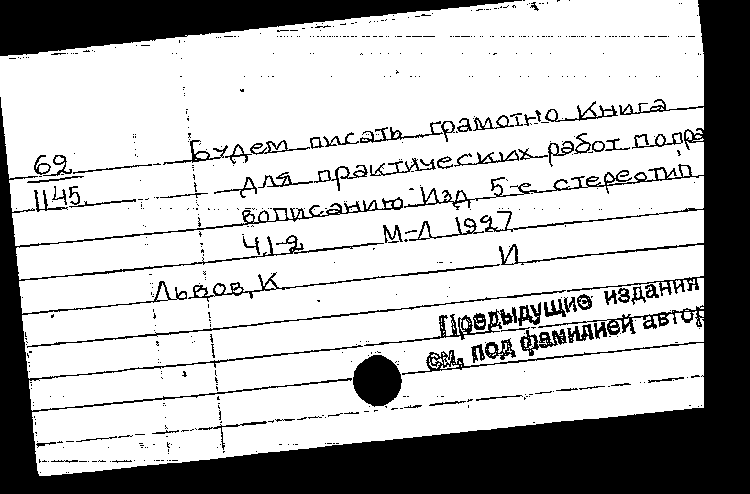 62
1145.
Будем писать грамотно Книга
для практических работ по пра
вописанию Изд. 5-е стереотип
Ч.1-2 М-Л 1927
Львов, К. И
Предыдущие издания
см. под фамилией автор